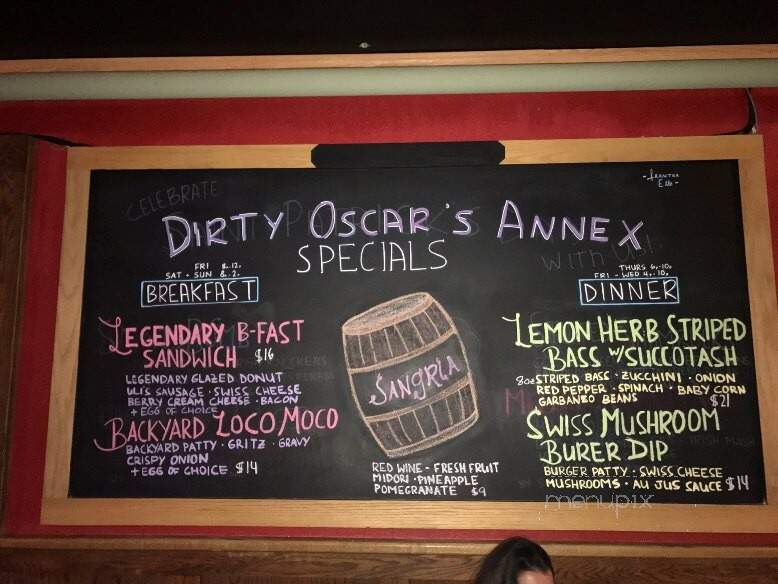 CELEBRATE
DIRTY OSCAR'S ANNEX
SPECIALS
with us!
FRI 8-12.
SAT - SUN 8-2.
BREAKFAST
LEGENDARY B-FAST
SANDWICH $16
LEGENDARY GLAZED DONUT
ULIS SAUSAGE · SWISS CHEESE
BERRY CREAM CHEESE · BACON
+ EGG OF CHOICE
BACKYARD LOCO MOCO
BACKYARD PATTY · GRITZ · GRAVY
CRISPY ONION
+ EGG OF CHOICE $14
SANGRIA
RED WINE - FRESH FRUIT
MIDORI · PINEAPPLE
POMEGRANATE $9
THURS 4-10.
FRI - WED 4-10.
DINNER
LEMON HERB STRIPED
BASS W/SUCCOTASH
8oz STRIPED BASS · ZUCCHINI · ONION
RED PEPPER · SPINACH · BABY CORN
GARBANZO BEANS $21
SWISS MUSHROOM
BURER DIP
BURGER PATTY · SWISS CHEESE
MUSHROOMS · AU JUS SAUCE $14
menupix